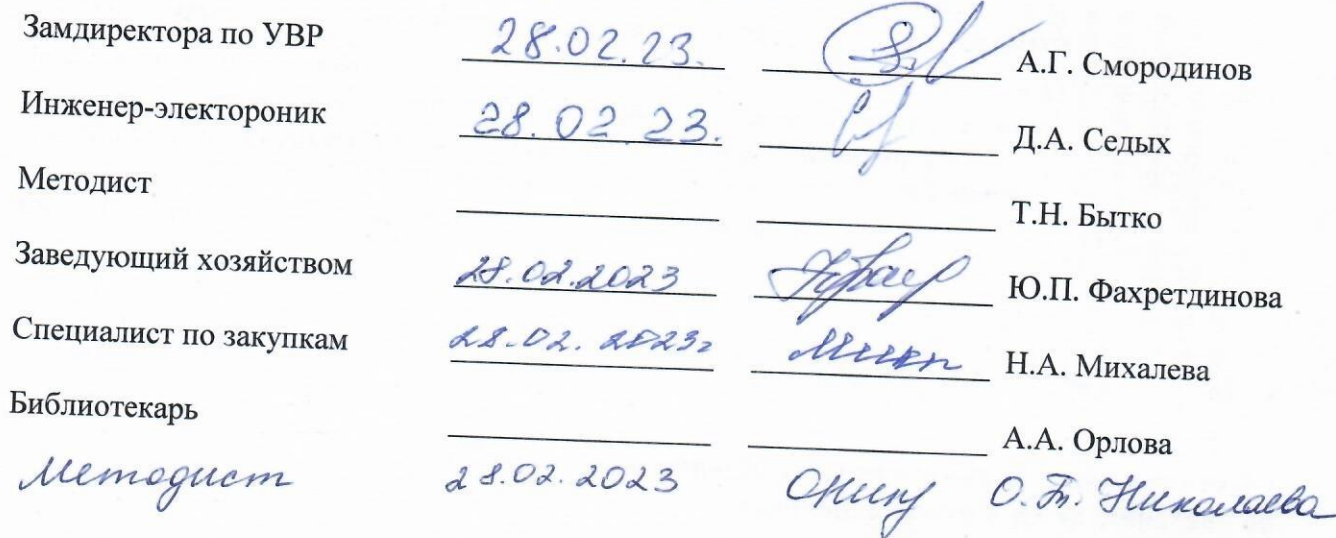 Замдиректора по УВР 28.02.23. А.Г. Смородинов
Инженер-электороник 28.02.23. Д.А. Седых
Методист Т.Н. Бытко
Заведующий хозяйством 28.02.2023 Ю.П. Фахретдинова
Специалист по закупкам 28.02.2023г Н.А. Михалева
Библиотекарь А.А. Орлова
Методист 28.02.2023 О.Т. Николаева